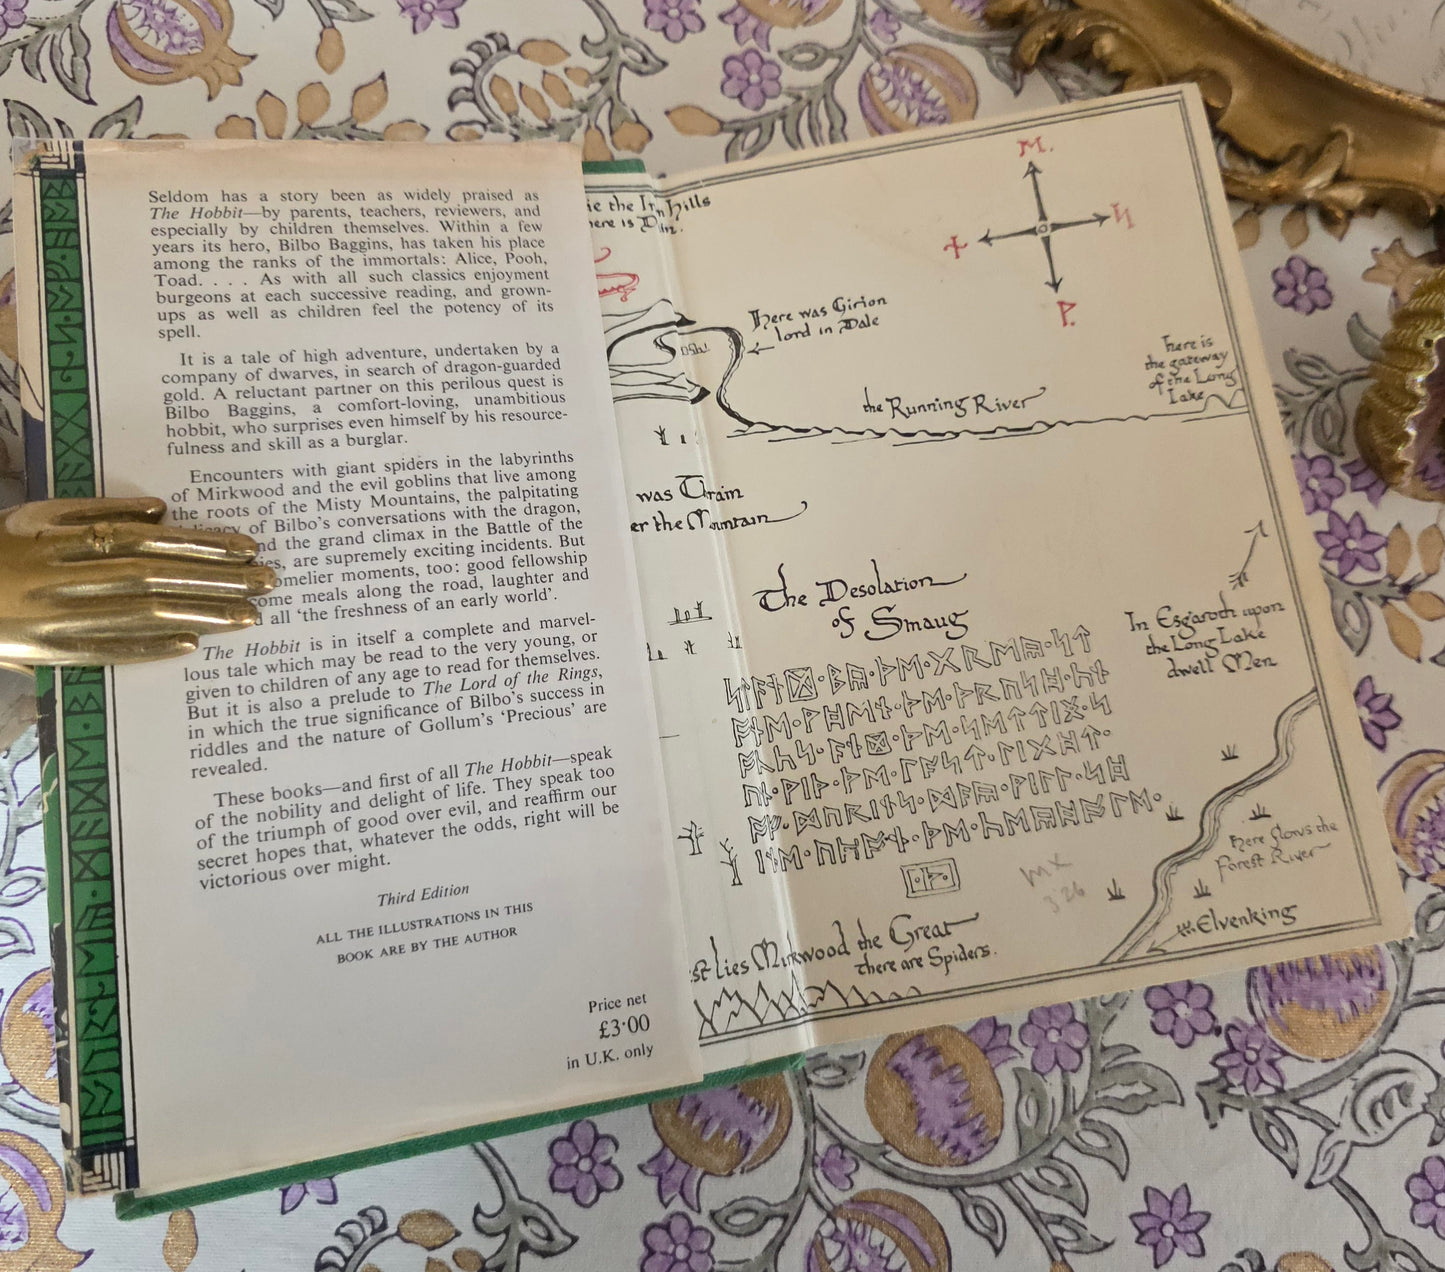 Seldom has a story been as widely praised as
The Hobbit—by parents, teachers, reviewers, and
especially by children themselves. Within a few
years its hero, Bilbo Baggins, has taken his place
among the ranks of the immortals: Alice, Pooh,
Toad. . . . As with all such classics enjoyment
burgeons at each successive reading, and grown-
ups as well as children feel the potency of its
spell.
It is a tale of high adventure, undertaken by a
company of dwarves, in search of dragon-guarded
gold. A reluctant partner on this perilous quest is
Bilbo Baggins, a comfort-loving, unambitious
hobbit, who surprises even himself by his resource-
fulness and skill as a burglar.
Encounters with giant spiders in the labyrinths
of Mirkwood and the evil goblins that live among
the roots of the Misty Mountains, the palpitating
of Bilbo's conversations with the dragon,
nd the grand climax in the Battle of the
ies, are supremely exciting incidents. But
omelier moments, too: good fellowship
ome meals along the road, laughter and
d all 'the freshness of an early world'.
The Hobbit is in itself a complete and marvel-
lous tale which may be read to the very young, or
given to children of any age to read for themselves.
But it is also a prelude to The Lord of the Rings,
in which the true significance of Bilbo's success in
riddles and the nature of Gollum's 'Precious' are
revealed.
These books—and first of all The Hobbit—speak
of the nobility and delight of life. They speak too
of the triumph of good over evil, and reaffirm our
secret hopes that, whatever the odds, right will be
victorious over might.
Third Edition
ALL THE ILLUSTRATIONS IN THIS
BOOK ARE BY THE AUTHOR
Price net
£3·00
in U.K. only
ie the Iron Hills
here is Dain.
Here was Girion
lord in Dale
the Running River
Here is
the gateway
of the Long
Lake
was Thrain
er the Mountain
The Desolation
of Smaug
ᛋᛏᚪᚾᛞ·ᛒᚣ·ᚦᛖ·ᚷᚱᛖᚣ·ᛋᛏ
ᚩᚾᛖ·ᚹᚻᛖᚾ·ᚦᛖ·ᚦᚱᚢᛋᚻ·ᚳᚾ
ᚩᚳᛋ·ᚪᚾᛞ·ᚦᛖ·ᛋᛖᛏᛏᛝ·ᛋ
ᚢᚾ·ᚹᛁᚦ·ᚦᛖ·ᛚᚪᛋᛏ·ᛚᛁᚷᚻᛏ·
ᚩᚠ·ᛞᚢᚱᛁᚾᛋ·ᛞᚪᚣ·ᚹᛁᛚᛚ·ᛋᚻ
ᛁᚾᛖ·ᚢᛈᚩᚾ·ᚦᛖ·ᚳᛖᚣᚻᚩᛚᛖ·
·ᚦ·
In Esgaroth upon
the Long Lake
dwell Men
Here flows the
Forest River
Elvenking
st lies Mirkwood the Great
there are Spiders.